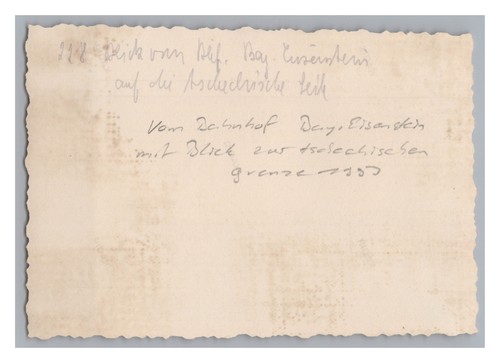 Blick vom Bhf. Bay. Eisenstein
auf die tschechische Seite
Vom Bahnhof Bay. Eisenstein
mit Blick zur tschechischen
grenze